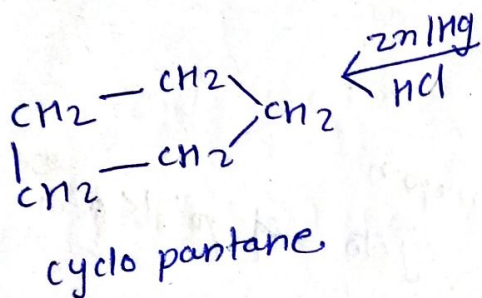 CH2 — CH2
CH2
Zn/Hg
HCl
CH2 — CH2
cyclo pantane